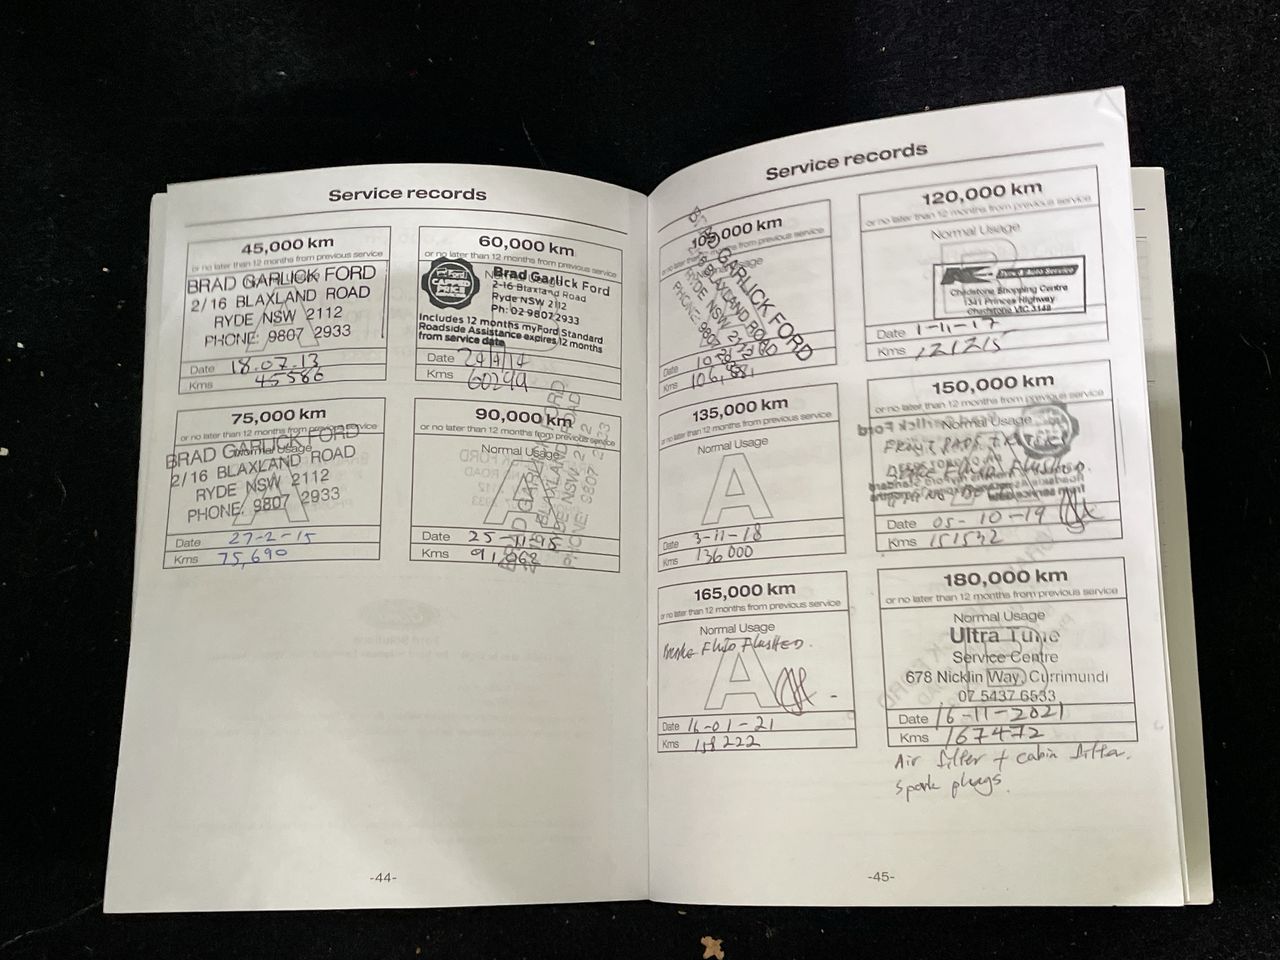 Service records
45,000 km
or no later than 12 months from previous service
BRAD GARLICK FORD
2/16 BLAXLAND ROAD
RYDE NSW 2112
PHONE: 9807 2933
Date 18.07.13
Kms 45586
60,000 km
or no later than 12 months from previous service
Brad Garlick Ford
2-16 Blaxland Road
Ryde NSW 2112
Ph: 02 9807 2933
Includes 12 months myFord Standard
Roadside Assistance expires 12 months
from service date
Date
Kms
75,000 km
or no later than 12 months from previous service
Normal Usage
BRAD GARLICK FORD
2/16 BLAXLAND ROAD
RYDE NSW 2112
PHONE: 9807 2933
A
Date 27-2-15
Kms 75,690
90,000 km
or no later than 12 months from previous service
Normal Usage
Date 25-11-15
Kms
-44-
Service records
105,000 km
or no later than 12 months from previous service
BRAD GARLICK FORD
BLAXLAND ROAD
RYDE NSW 2112
PHONE: 9807
Date
Kms
120,000 km
or no later than 12 months from previous service
Normal Usage
Tyre & Auto Service
Chadstone Shopping Centre
1341 Princes Highway
Chadstone VIC 3148
Date 1-11-17
Kms 121215
135,000 km
or no later than 12 months from previous service
Normal Usage
A
Date 3-11-18
Kms 136000
150,000 km
or no later than 12 months from previous service
Normal Usage
Flushed.
Date 05-10-19
Kms 151532
165,000 km
or no later than 12 months from previous service
Normal Usage
Brake Fluid Flushed.
A
Date 16-01-21
Kms 158222
180,000 km
or no later than 12 months from previous service
Normal Usage
Ultra Tune
Service Centre
678 Nicklin Way, Currimundi
07 5437 6533
Date 16-11-2021
Kms 167472
Air filter + cabin filter.
spark plugs.
-45-